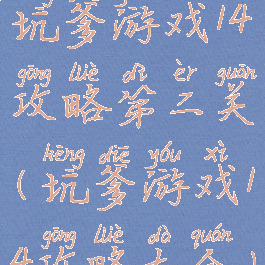 坑爹游戏14
gōng lüè dì èr guān
攻略第二关
kēng diē yóu xì
(坑爹游戏1
gōng lüè dà quán
4攻略大全)